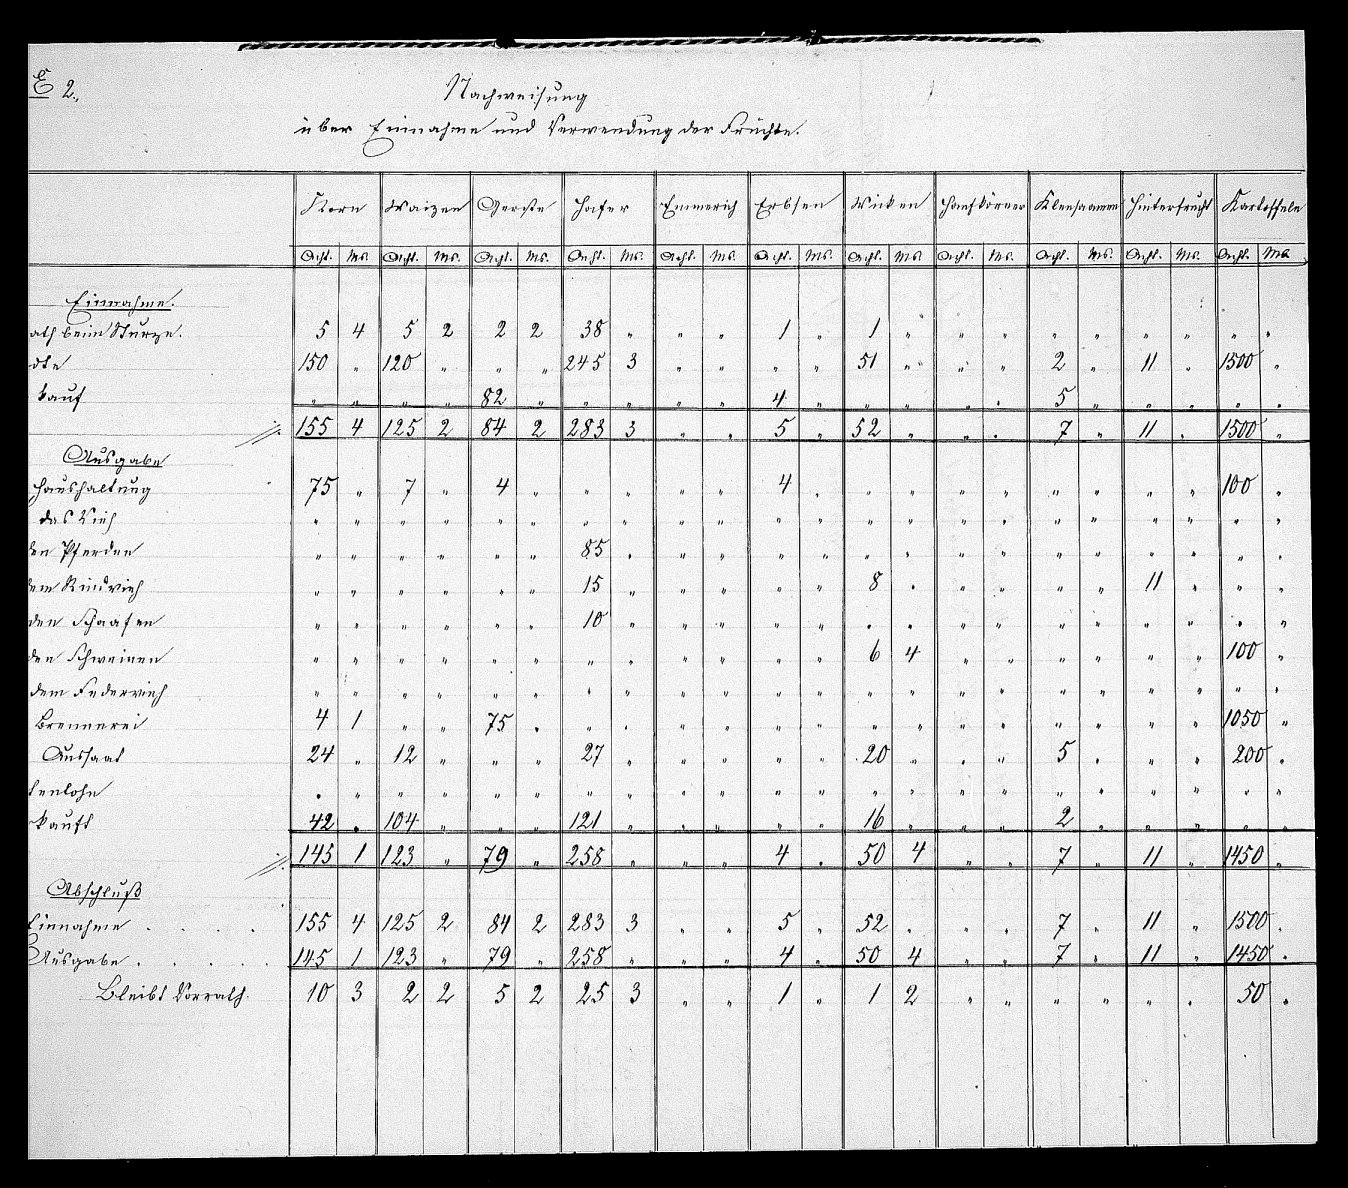 E 2.,
Nachweisung
über Einnahme und Verwendung der Früchte.
Korn Waizen Gerste Hafer Emmerich Erbsen Wicken Hanfkörner Kleesaamen Hinterfrucht Kartoffeln
Acht. Ms. Acht. Ms. Acht. Ms. Acht. Ms. Acht. Ms. Acht. Ms. Acht. Ms. Acht. Ms. Acht. Ms. Acht. Ms. Acht. Ms.
Einnahme.
ath beim Sturze. 5 4 5 2 2 2 38 „ „ „ 1 „ 1 „ „ „ „ „ „ „ „ „
dte 150 „ 120 „ „ „ 245 3 „ „ „ „ 51 „ „ „ 2 „ 11 „ 1500 „
kauf „ „ „ „ 82 „ „ „ „ „ 4 „ „ „ „ „ 5 „ „ „ „ „
155 4 125 2 84 2 283 3 „ „ 5 „ 52 „ „ „ 7 „ 11 „ 1500 „
Ausgabe
Haushaltung 75 „ 7 „ 4 „ „ „ „ „ 4 „ „ „ „ „ „ „ „ „ 100 „
das Vieh „ „ „ „ „ „ „ „ „ „ „ „ „ „ „ „ „ „ „ „ „ „
den Pferden „ „ „ „ „ „ 85 „ „ „ „ „ „ „ „ „ „ „ „ „ „ „
dem Rindvieh „ „ „ „ „ „ 15 „ „ „ „ „ 8 „ „ „ „ „ 11 „ „ „
den Schaafen „ „ „ „ „ „ 10 „ „ „ „ „ „ „ „ „ „ „ „ „ „ „
den Schweinen „ „ „ „ „ „ „ „ „ „ „ „ 6 4 „ „ „ „ „ „ 100 „
dem Federvieh „ „ „ „ „ „ „ „ „ „ „ „ „ „ „ „ „ „ „ „ „ „
Brennerei 4 1 „ „ 75 „ „ „ „ „ „ „ „ „ „ „ „ „ „ „ 1050 „
Aussaat 24 „ 12 „ „ „ 27 „ „ „ „ „ 20 „ „ „ 5 „ „ „ 200 „
tenlohn „ „ „ „ „ „ „ „ „ „ „ „ „ „ „ „ „ „ „ „ „ „
kauft 42 „ 104 „ „ „ 121 „ „ „ „ „ 16 „ „ „ 2 „ „ „ „ „
145 1 123 „ 79 „ 258 „ „ „ 4 „ 50 4 „ „ 7 „ 11 „ 1450 „
Abschluß
Einnahme . . . . 155 4 125 2 84 2 283 3 „ „ 5 „ 52 „ „ „ 7 „ 11 „ 1500 „
Ausgabe . . . . . 145 1 123 „ 79 „ 258 „ „ „ 4 „ 50 4 „ „ 7 „ 11 „ 1450 „
Bleibt Vorrath. 10 3 2 2 5 2 25 3 „ „ 1 „ 1 2 „ „ „ „ „ „ 50 „